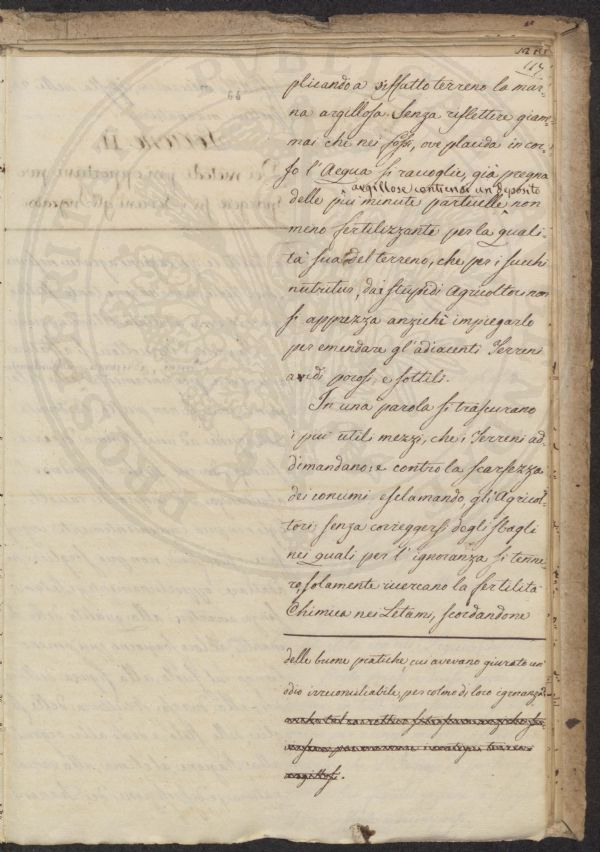 117
plicando a siffatto terreno la mar-
na argillosa. Senza riflettere giam-
mai che nei fossi, ove placida in cor-
so l'Acqua si raccoglie, già pregna
argillose contiensi un deposito
delle più minute particelle non
meno fertilizzante per la quali-
tà sua del terreno, che per i succhi
nutritivi, dai stupidi Agricoltori non
si apprezza anzichè impiegarlo
per emendare gl'adiacenti Terreni
avidi porosi, e sottili.
In una parola si trascurano
i più utili mezzi, che i Terreni ad-
dimandano; e contro la scarsezza
dei concimi esclamando gli Agricol-
tori senza correggersi degli sbagli
nei quali per l'ignoranza si tenne-
ro, solamente ricercano la fertilità
Chimica nei Letami, scordandone
delle buone pratiche, cui avevano giurato un'
odio irreconciliabile, per colmo di loro ignoranza
argillosi.